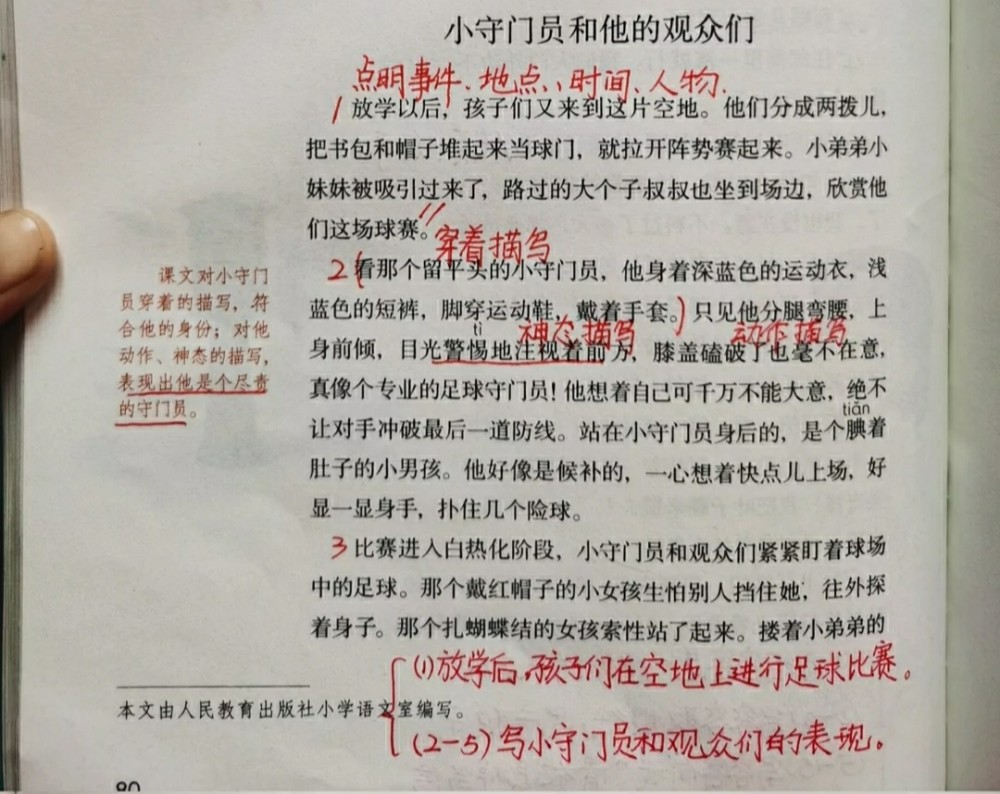 小守门员和他的观众们
点明事件、地点、时间、人物.
1 放学以后，孩子们又来到这片空地。他们分成两拨儿，
把书包和帽子堆起来当球门，就拉开阵势赛起来。小弟弟小
妹妹被吸引过来了，路过的大个子叔叔也坐到场边，欣赏他
们这场球赛。//
穿着描写
2 (看那个留平头的小守门员，他身着深蓝色的运动衣，浅
蓝色的短裤，脚穿运动鞋，戴着手套。)只见他分腿弯腰，上
tì
神态描写 动作描写
身前倾，目光警惕地注视着前方，膝盖磕破了也毫不在意，
真像个专业的足球守门员！他想着自己可千万不能大意，绝不
tiǎn
让对手冲破最后一道防线。站在小守门员身后的，是个腆着
肚子的小男孩。他好像是候补的，一心想着快点儿上场，好
显一显身手，扑住几个险球。
3 比赛进入白热化阶段，小守门员和观众们紧紧盯着球场
中的足球。那个戴红帽子的小女孩生怕别人挡住她，往外探
着身子。那个扎蝴蝶结的女孩索性站了起来。搂着小弟弟的
课文对小守门
员穿着的描写，符
合他的身份；对他
动作、神态的描写，
表现出他是个尽责
的守门员。
(1)放学后，孩子们在空地上进行足球比赛。
本文由人民教育出版社小学语文室编写。
(2-5)写小守门员和观众们的表现。